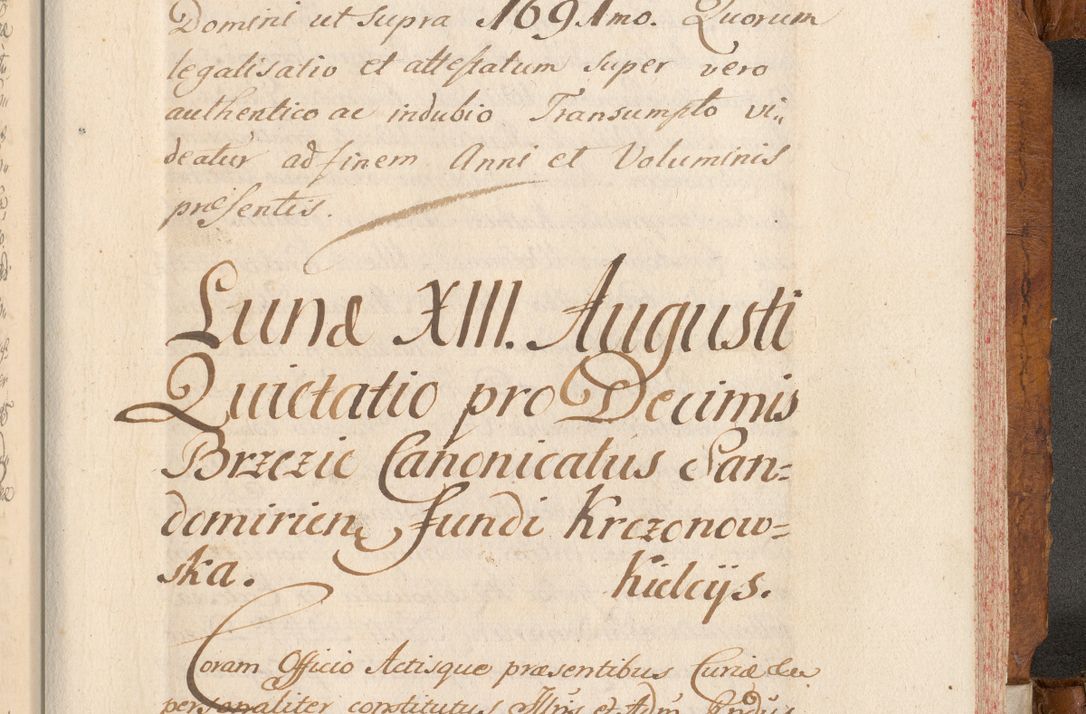 Domini ut supra 1691mo. Quorum
legalisatio et attestatum super vero
authentico ac indubio Transumpto vi„
deatur ad finem Anni et Voluminis
præsentis.
Lunæ XIII. Augusti
Quietatio pro Decimis
Brzezie Canonicatus San=
domirien, fundi Krczonow=
ska. Kielcijs.
Coram Officio Actisque præsentibus Curiæ
personaliter constitutus Illris et Adm